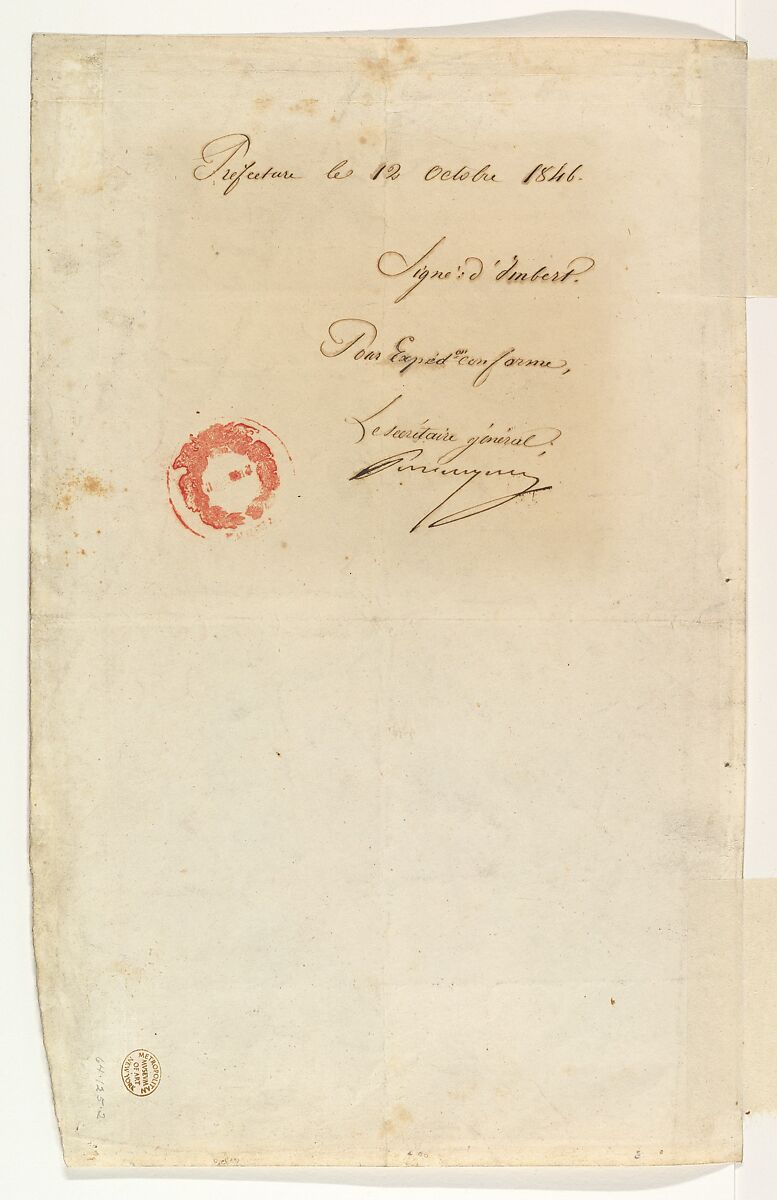 Préfecture le 12 Octobre 1846.
Signé: d'Imbert.
Pour Expéd.on conforme,
Le secrétaire général.
METROPOLITAN
MUSEUM
OF ART
NEW YORK